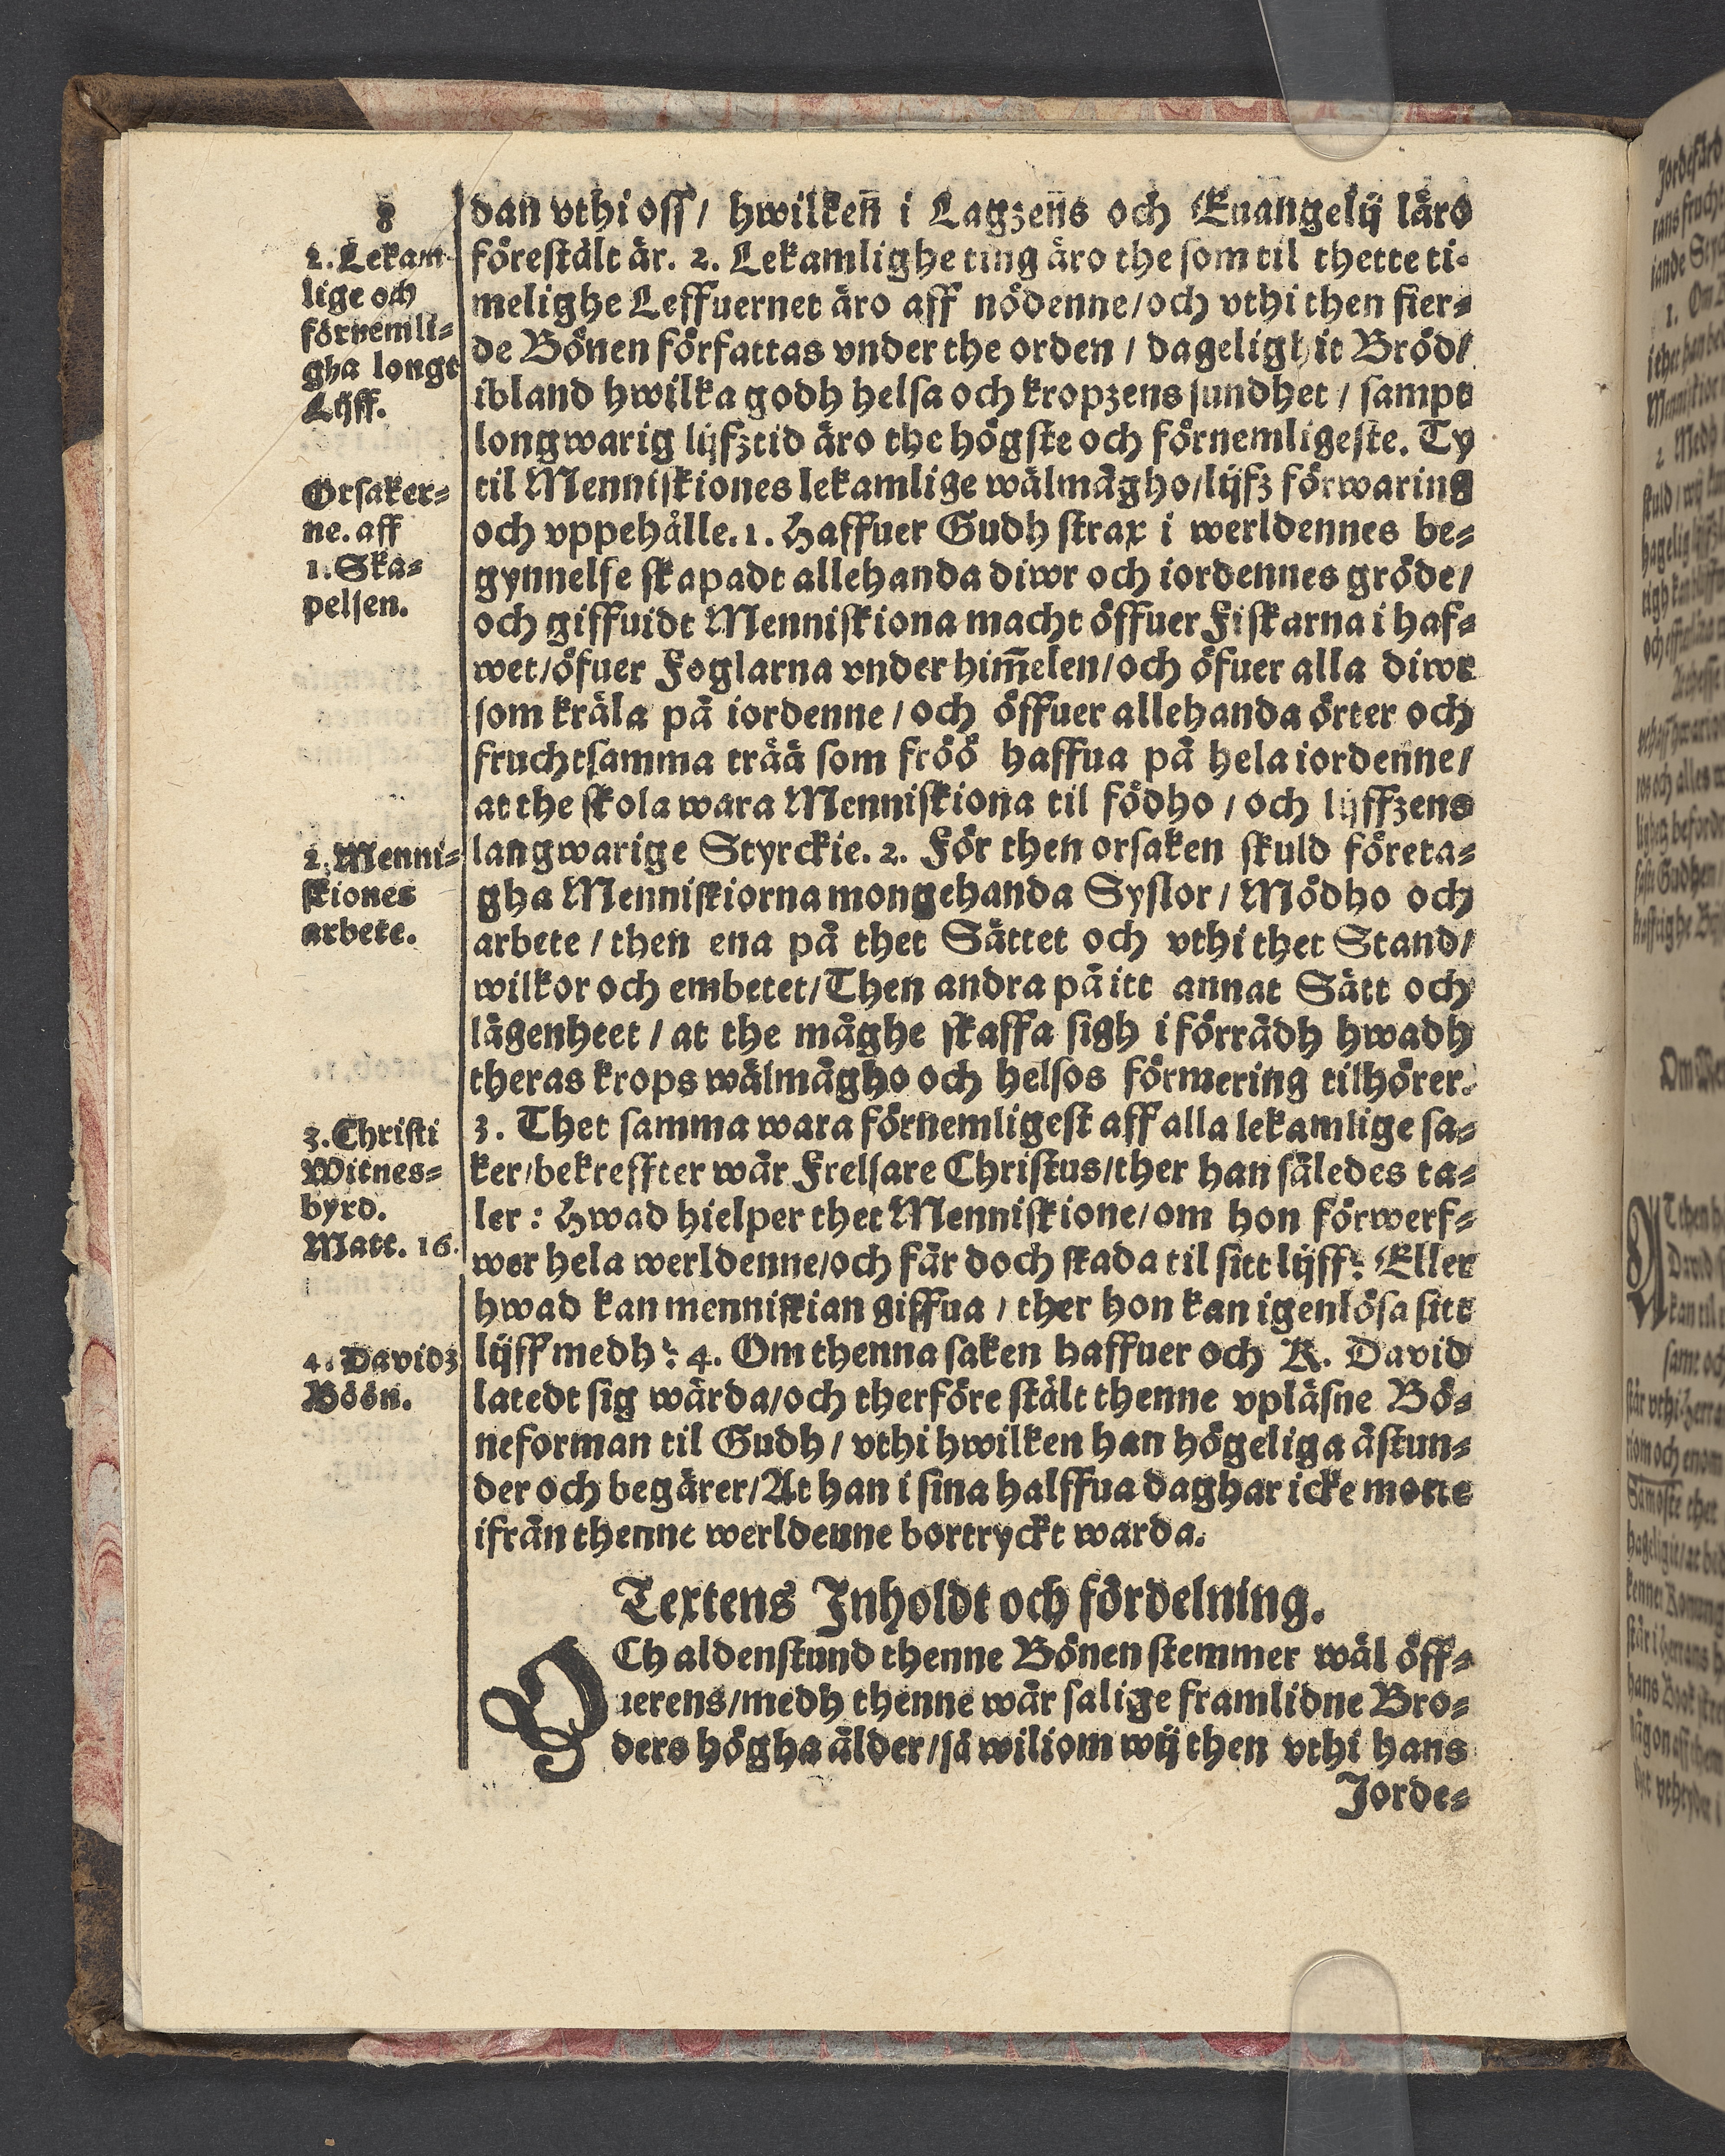 8
2. Lekam-
lige och
förnemli-
gha longt
Lijff.
Orsaker-
ne. aff
1. Ska-
pelsen.
2. Menni-
skiones
arbete.
3. Christi
Witnes-
byrd.
Matt. 16.
4. Davidz
Böön.
dan vthi oss / hwilken̄ i Lagzen̄s och Euangelij läro
förestält är. 2. Lekamlighe ting äro the som til thette ti-
melighe Leffuernet äro aff nödenne / och vthi then fier-
de Bönen författas vnder the orden / dagelighit Bröd /
ibland hwilka godh helsa och kropzens sundhet / sampt
longwarig lijfztid äro the högste och förnemligeste. Ty
til Menniskiones lekamlige wälmågho / lijfz förwaring
och vppehålle. 1. Haffuer Gudh strax i werldennes be-
gynnelse skapadt allehanda diwr och iordennes gröde /
och giffuidt Menniskiona macht öffuer Fiskarna i haf-
wet / öfuer Foglarna vnder him̄elen / och öfuer alla diwr
som kräla på iordenne / och öffuer allehanda örter och
fruchtsamma trää som fröö haffua på hela iordenne /
at the skola wara Menniskiona til födho / och lijffzens
langwarige Styrckie. 2. För then orsaken skuld företa-
gha Menniskiorna mongehanda Syslor / Mödho och
arbete / then ena på thet Sättet och vthi thet Stand /
wilkor och embetet / Then andra på itt annat Sätt och
lägenheet / at the måghe skaffa sigh i förrådh hwadh
theras krops wälmågho och helsos förmering tilhörer.
3. Thet samma wara förnemligest aff alla lekamlige sa-
ker / bekreffter wår Frelsare Christus / ther han således ta-
ler : Hwad hielper thet Menniskione / om hon förwerf-
wer hela werldenne / och får doch skada til sitt lijff? Eller
hwad kan menniskian giffua / ther hon kan igenlösa sitt
lijff medh? 4. Om thenna saken haffuer och K. David
latedt sig wårda / och therföre stält thenne vpläsne Bö-
neforman til Gudh / vthi hwilken han högeliga åstun-
der och begärer / At han i sina halffua daghar icke motte
ifrån thenne werldenne bortryckt warda.
Textens Inholdt och fördelning.
OCh aldenstund thenne Bönen stemmer wäl öff-
uerens / medh thenne wår salige framlidne Bro-
ders högha ålder / så wiliom wij then vthi hans
Jorde-